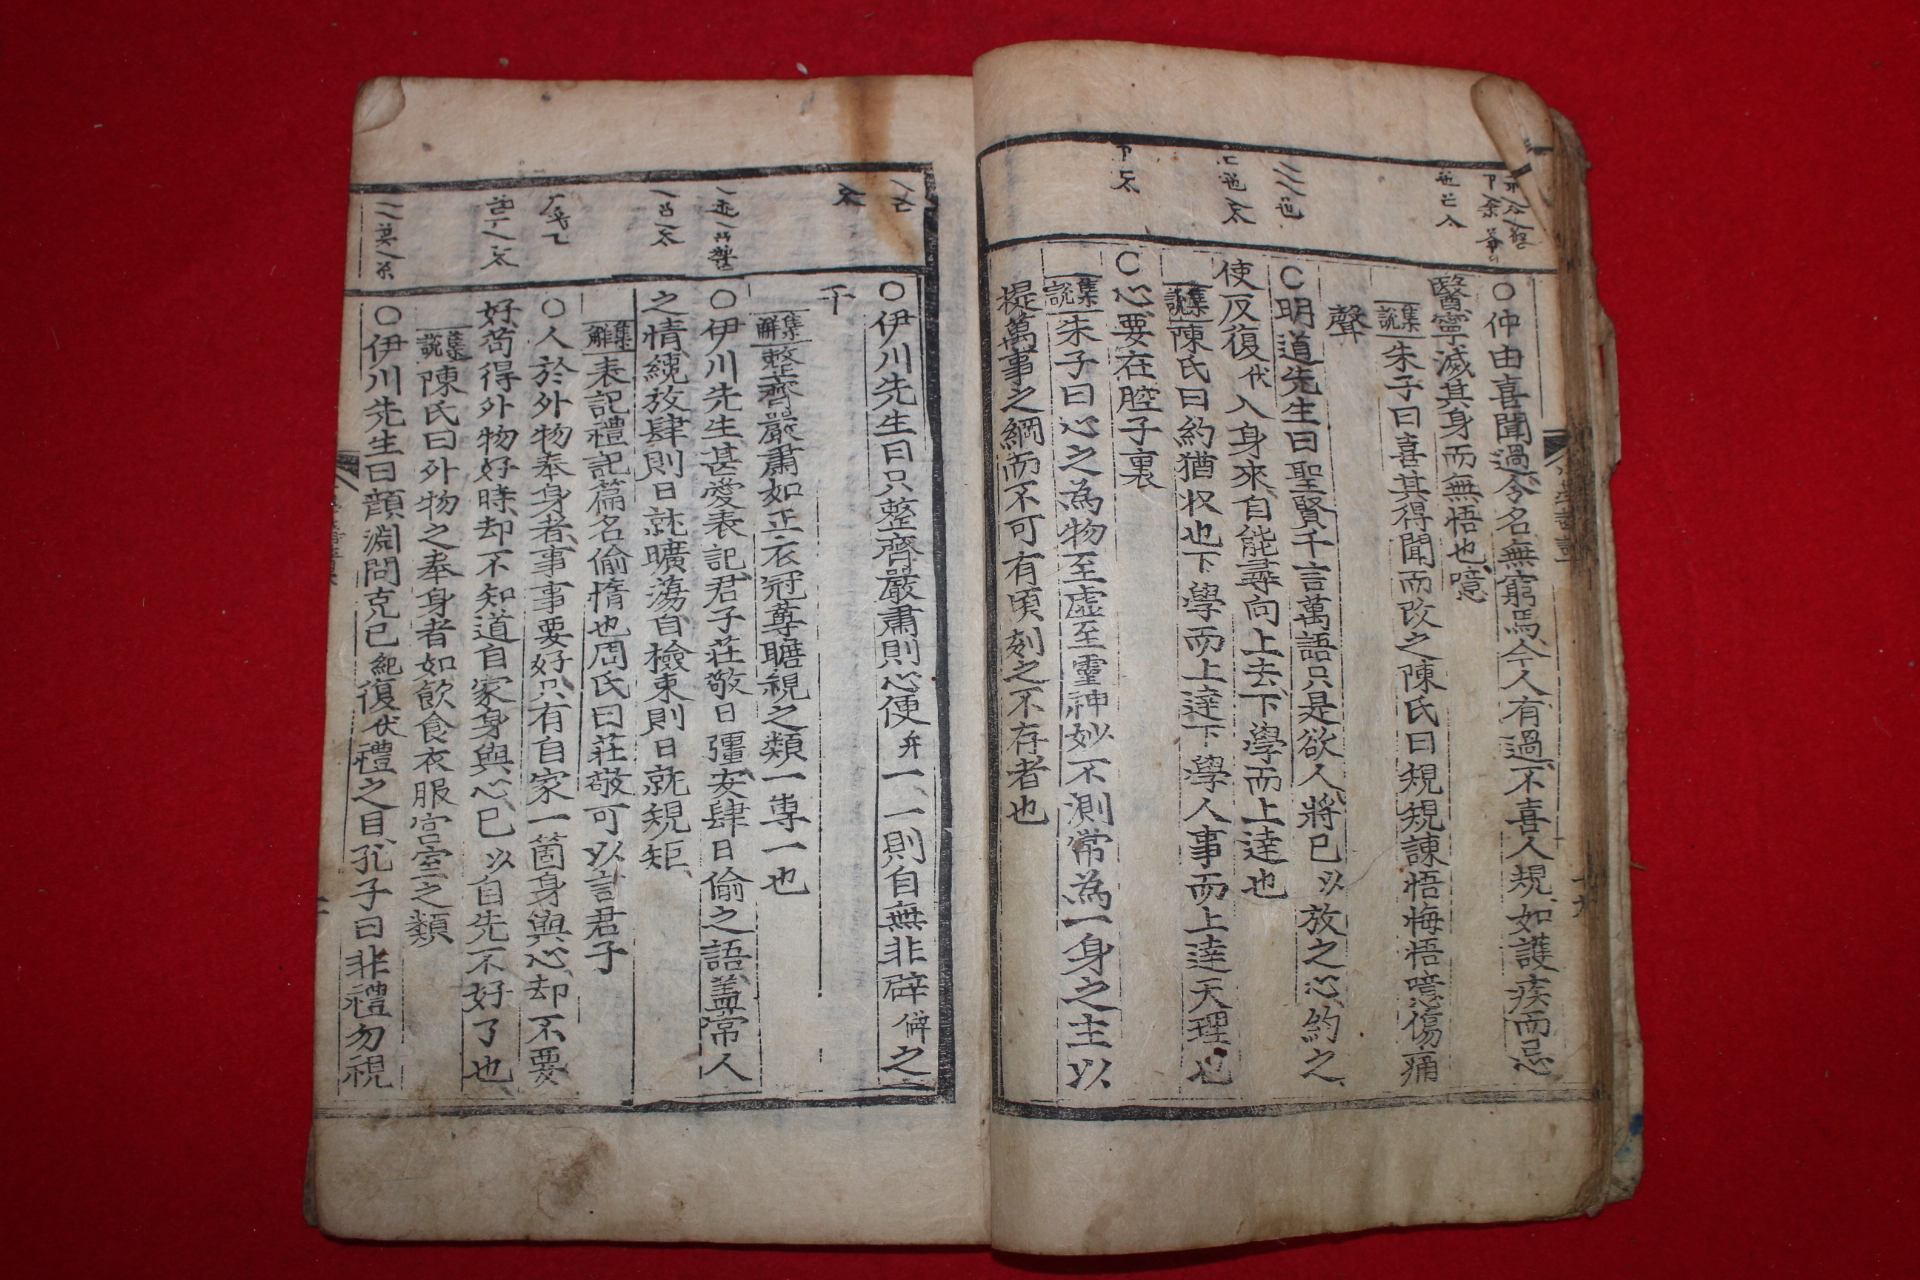 ○仲由喜聞過令名無窮焉今人有過不喜人規如護疾而忌
醫寧滅其身而無悟也噫
集說朱子曰喜其得聞而改之陳氏曰規規諫悟悔悟噫傷痛
聲
○明道先生曰聖賢千言萬語只是欲人將已以放之心約之
使反復伏入身來自能尋向上去下學而上達也
集說陳氏曰約猶收也下學而上達下學人事而上達天理也
○心要在腔子裏
集說朱子曰心之為物至虛至靈神妙不測常為一身之主以
提萬事之綱而不可有頃刻之不存者也
○伊川先生曰只整齊嚴肅則心便一一則自無非辟僻之
干
集解整齊嚴肅如正衣冠尊瞻視之類一專一也
○伊川先生甚愛表記君子莊敬日彊安肆日偷之語蓋常人
之情纔放肆則日就曠蕩自檢束則日就規矩
集解表記禮記篇名偷惰也周氏曰莊敬可以言君子
○人於外物奉身者事事要好只有自家一箇身與心却不要
好苟得外物好時却不知道自家身與心已以自先不好了也
集說陳氏曰外物之奉身者如飲食衣服宮室之類
○伊川先生曰顏淵問克己紀復伏禮之目孔子曰非禮勿視